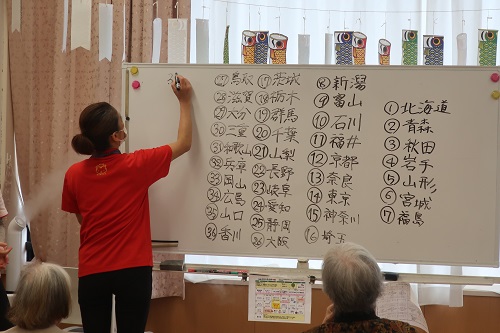 ①北海道
②青森
③秋田
④岩手
⑤山形
⑥宮城
⑦福島
⑧新潟
⑨富山
⑩石川
⑪福井
⑫京都
⑬奈良
⑭東京
⑮神奈川
⑯埼玉
⑰茨城
⑱栃木
⑲群馬
⑳千葉
㉑山梨
㉒長野
㉓岐阜
㉔愛知
㉕静岡
㉖大阪
㉗鳥取
㉘滋賀
㉙大分
㉚三重
㉛和歌山
㉜兵庫
㉝岡山
㉞広島
㉟山口
㊱香川